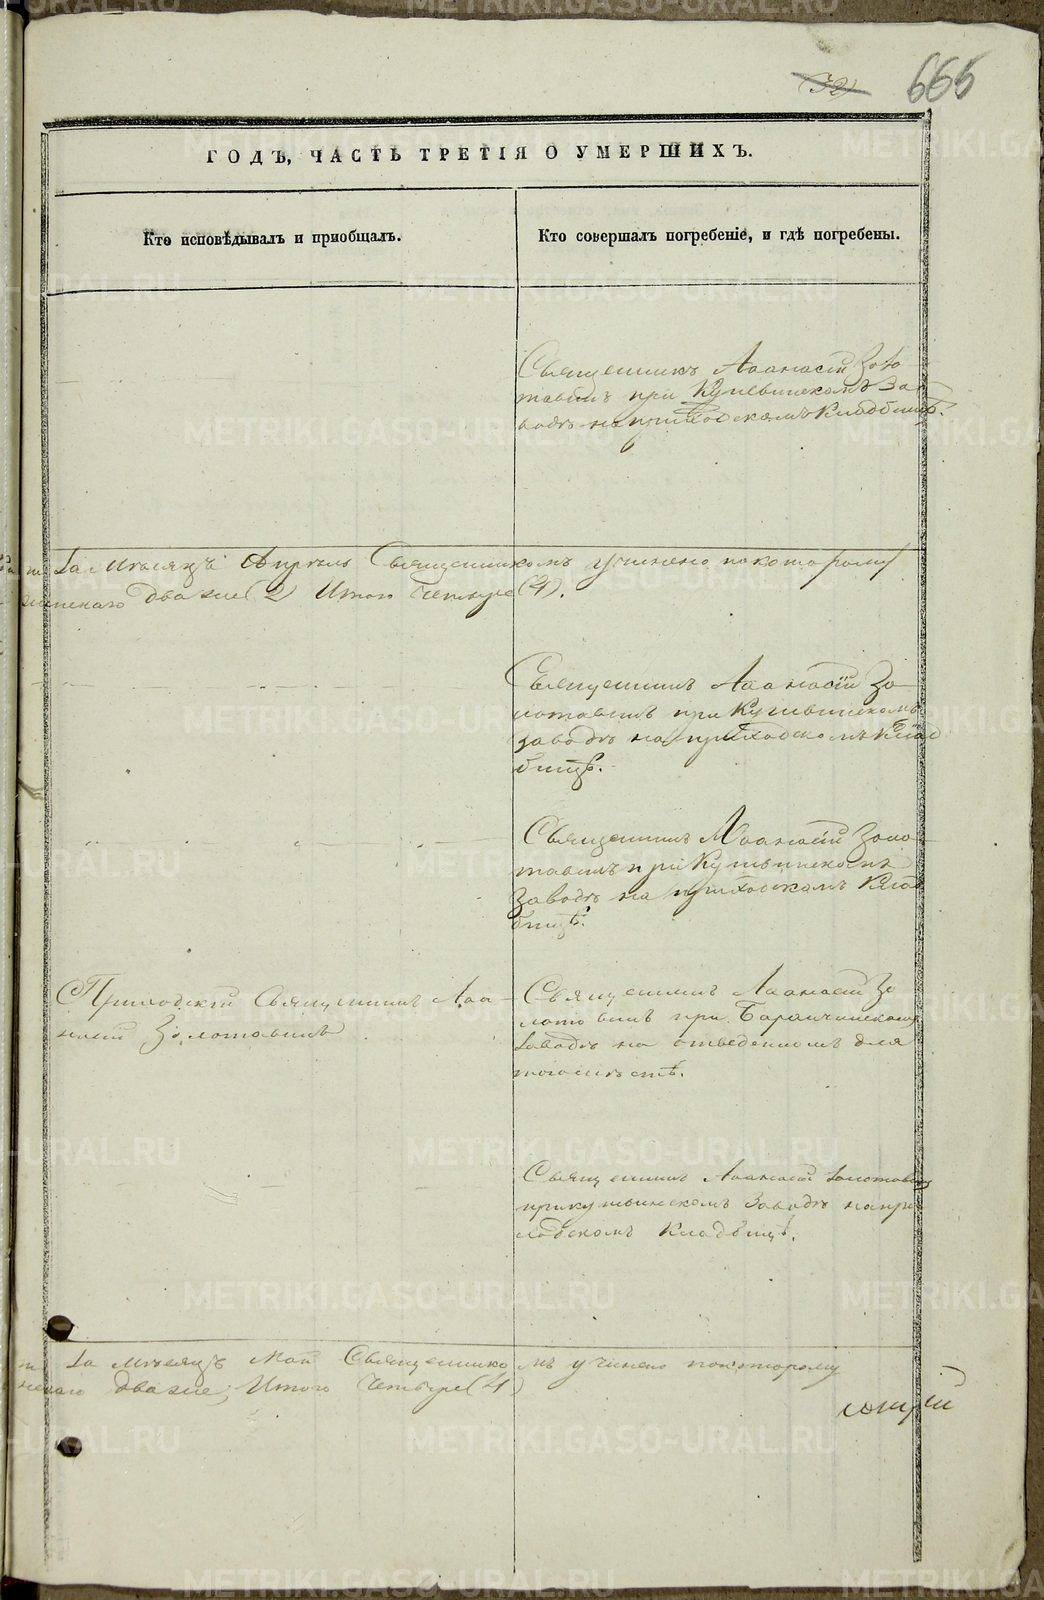 666
ГОДЪ, ЧАСТЬ ТРЕТІЯ О УМЕРШИХЪ.
Кто исповѣдывалъ и пріобщалъ.
Кто совершалъ погребеніе, и гдѣ погребены.
Священникъ Аѳанасій Золо
тавинъ при Кушвинскомъ За
водѣ на приходскомъ Кладбищѣ.
За Мѣсяцъ Апрѣль Священникомъ учинено по которому
двакие (2) Итого Четыре (4).
Священникъ Аѳанасій Зо
лотавинъ при Кушвинскомъ
заводѣ на приходскомъ Клад
бищѣ.
Священникъ Аѳанасій Золо
тавинъ при Кушвинскомъ
Заводѣ на приходскомъ Клад
бищѣ.
Приходскій Священникъ Аѳа
насій Золотавинъ
Священникъ Аѳанасій Зо
лотовинъ при Баранчинскомъ
Заводѣ на отведенномъ для
того мѣстѣ.
Священникъ Аѳанасій Золотавинъ
при Кушвинскомъ Заводѣ на при
ходскомъ Кладбищѣ.
За Мѣсяцъ Май Священникомъ учинено по которому
Итого Четыре (4)
METRIKI.GASO-URAL.RU